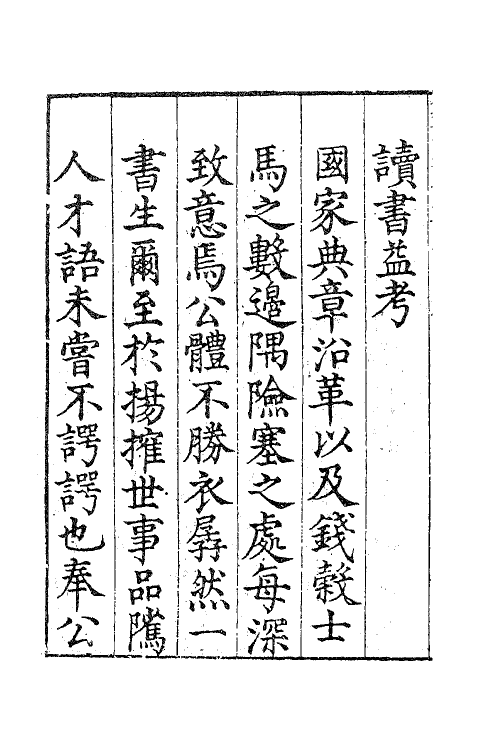 讀書益考
國家典章沿革以及錢榖士
馬之數邊隅險塞之處每深
致意焉公體不勝衣孱然一
書生爾至於揚搉世事品隲
人才語未嘗不諤諤也奉公